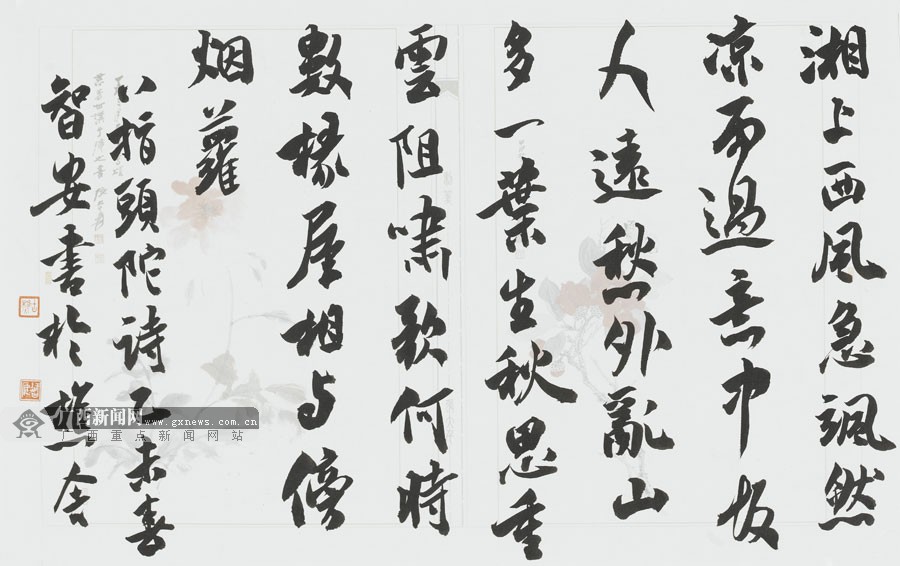 湘上西風急颯然
凉雨過意中故
人遠愁外亂山
多一葉生秋思重
雲阻嘯歌何時
數椽屋相与傍
烟蘿
八指頭陀詩乙未春
智安書於樵舍
广西新闻网 www.gxnews.com.cn
广西重点新闻网站